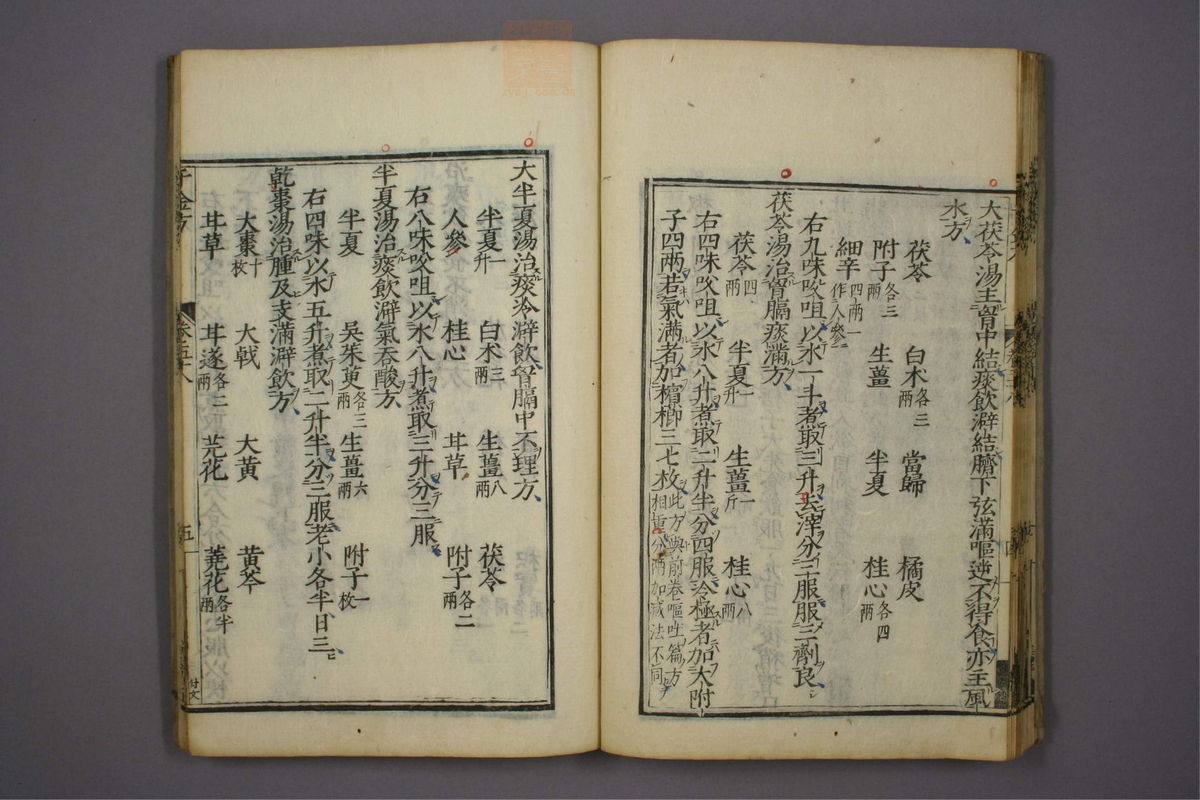 大茯苓湯主胷中結痰飲澼結臍下弦滿嘔逆不得食亦主風
水方
茯苓 白术各三兩 當歸 橘皮
附子各三兩 生薑 半夏 桂心各四兩
細辛四兩一作人參
右九味㕮咀以水一斗煮取三升去滓分三服服三劑良
茯苓湯治胷膈痰滿方
茯苓四兩 半夏一升 生薑一斤 桂心八兩
右四味㕮咀以水八升煮取二升半分四服冷極者加大附
子四兩若氣滿者加檳榔三七枚此方與前卷嘔吐篇方
相重分兩加減法不同
大半夏湯治痰冷澼飲胷膈中不理方
半夏一升 白术三兩 生薑八兩 茯苓
人參 桂心 甘草 附子各二兩
右八味㕮咀以水八升煮取三升分三服
半夏湯治痰飲澼氣吞酸方
半夏 吳茱萸各三兩 生薑六兩 附子一枚
右四味以水五升煮取二升半分三服老小各半日三
乾棗湯治腫及支滿澼飲方
大棗十枚 大戟 大黃 黃芩
甘草 甘遂各二兩 芫花 蕘花各半兩
千金方
卷五十八
五
付文